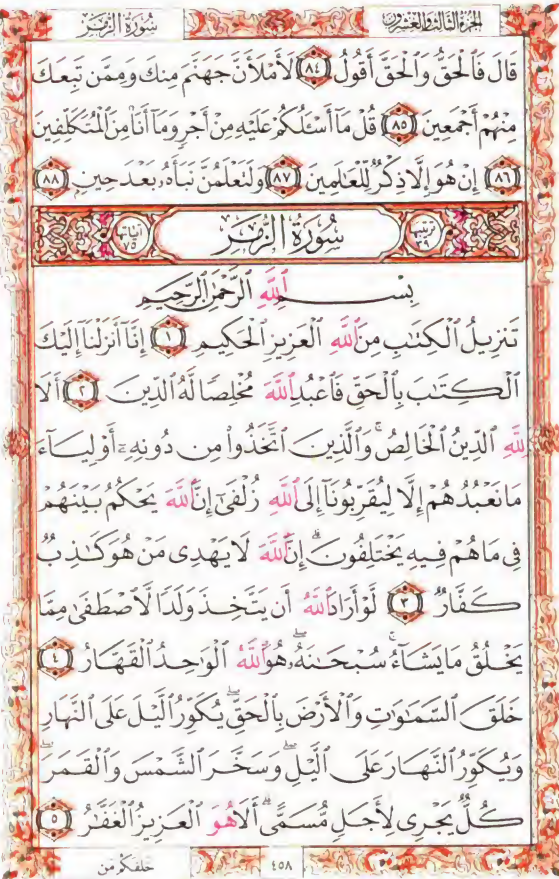 الجزء الثالث والعشرون
سُورَةُ الزُّمَرِ
قَالَ فَٱلْحَقُّ وَٱلْحَقَّ أَقُولُ ٨٤ لَأَمْلَأَنَّ جَهَنَّمَ مِنكَ وَمِمَّن تَبِعَكَ
مِنْهُمْ أَجْمَعِينَ ٨٥ قُلْ مَآ أَسْـَٔلُكُمْ عَلَيْهِ مِنْ أَجْرٍ وَمَآ أَنَا۠ مِنَ ٱلْمُتَكَلِّفِينَ
٨٦ إِنْ هُوَ إِلَّا ذِكْرٌ لِّلْعَٰلَمِينَ ٨٧ وَلَتَعْلَمُنَّ نَبَأَهُۥ بَعْدَ حِينٍ ٨٨
ترتيبها ٣٩ سُورَةُ الزُّمَرِ آياتها ٧٥
بِسْمِ ٱللَّهِ ٱلرَّحْمَٰنِ ٱلرَّحِيمِ
تَنزِيلُ ٱلْكِتَٰبِ مِنَ ٱللَّهِ ٱلْعَزِيزِ ٱلْحَكِيمِ ١ إِنَّآ أَنزَلْنَآ إِلَيْكَ
ٱلْكِتَٰبَ بِٱلْحَقِّ فَٱعْبُدِ ٱللَّهَ مُخْلِصًا لَّهُ ٱلدِّينَ ٢ أَلَا
لِلَّهِ ٱلدِّينُ ٱلْخَالِصُ ۚ وَٱلَّذِينَ ٱتَّخَذُوا۟ مِن دُونِهِۦٓ أَوْلِيَآءَ
مَا نَعْبُدُهُمْ إِلَّا لِيُقَرِّبُونَآ إِلَى ٱللَّهِ زُلْفَىٰٓ إِنَّ ٱللَّهَ يَحْكُمُ بَيْنَهُمْ
فِى مَا هُمْ فِيهِ يَخْتَلِفُونَ ۗ إِنَّ ٱللَّهَ لَا يَهْدِى مَنْ هُوَ كَٰذِبٌ
كَفَّارٌ ٣ لَّوْ أَرَادَ ٱللَّهُ أَن يَتَّخِذَ وَلَدًا لَّٱصْطَفَىٰ مِمَّا
يَخْلُقُ مَا يَشَآءُ ۚ سُبْحَٰنَهُۥ ۖ هُوَ ٱللَّهُ ٱلْوَٰحِدُ ٱلْقَهَّارُ ٤
خَلَقَ ٱلسَّمَٰوَٰتِ وَٱلْأَرْضَ بِٱلْحَقِّ ۖ يُكَوِّرُ ٱلَّيْلَ عَلَى ٱلنَّهَارِ
وَيُكَوِّرُ ٱلنَّهَارَ عَلَى ٱلَّيْلِ ۖ وَسَخَّرَ ٱلشَّمْسَ وَٱلْقَمَرَ ۖ
كُلٌّ يَجْرِى لِأَجَلٍ مُّسَمًّى ۗ أَلَا هُوَ ٱلْعَزِيزُ ٱلْغَفَّٰرُ ٥
٤٥٨
خلقكم من